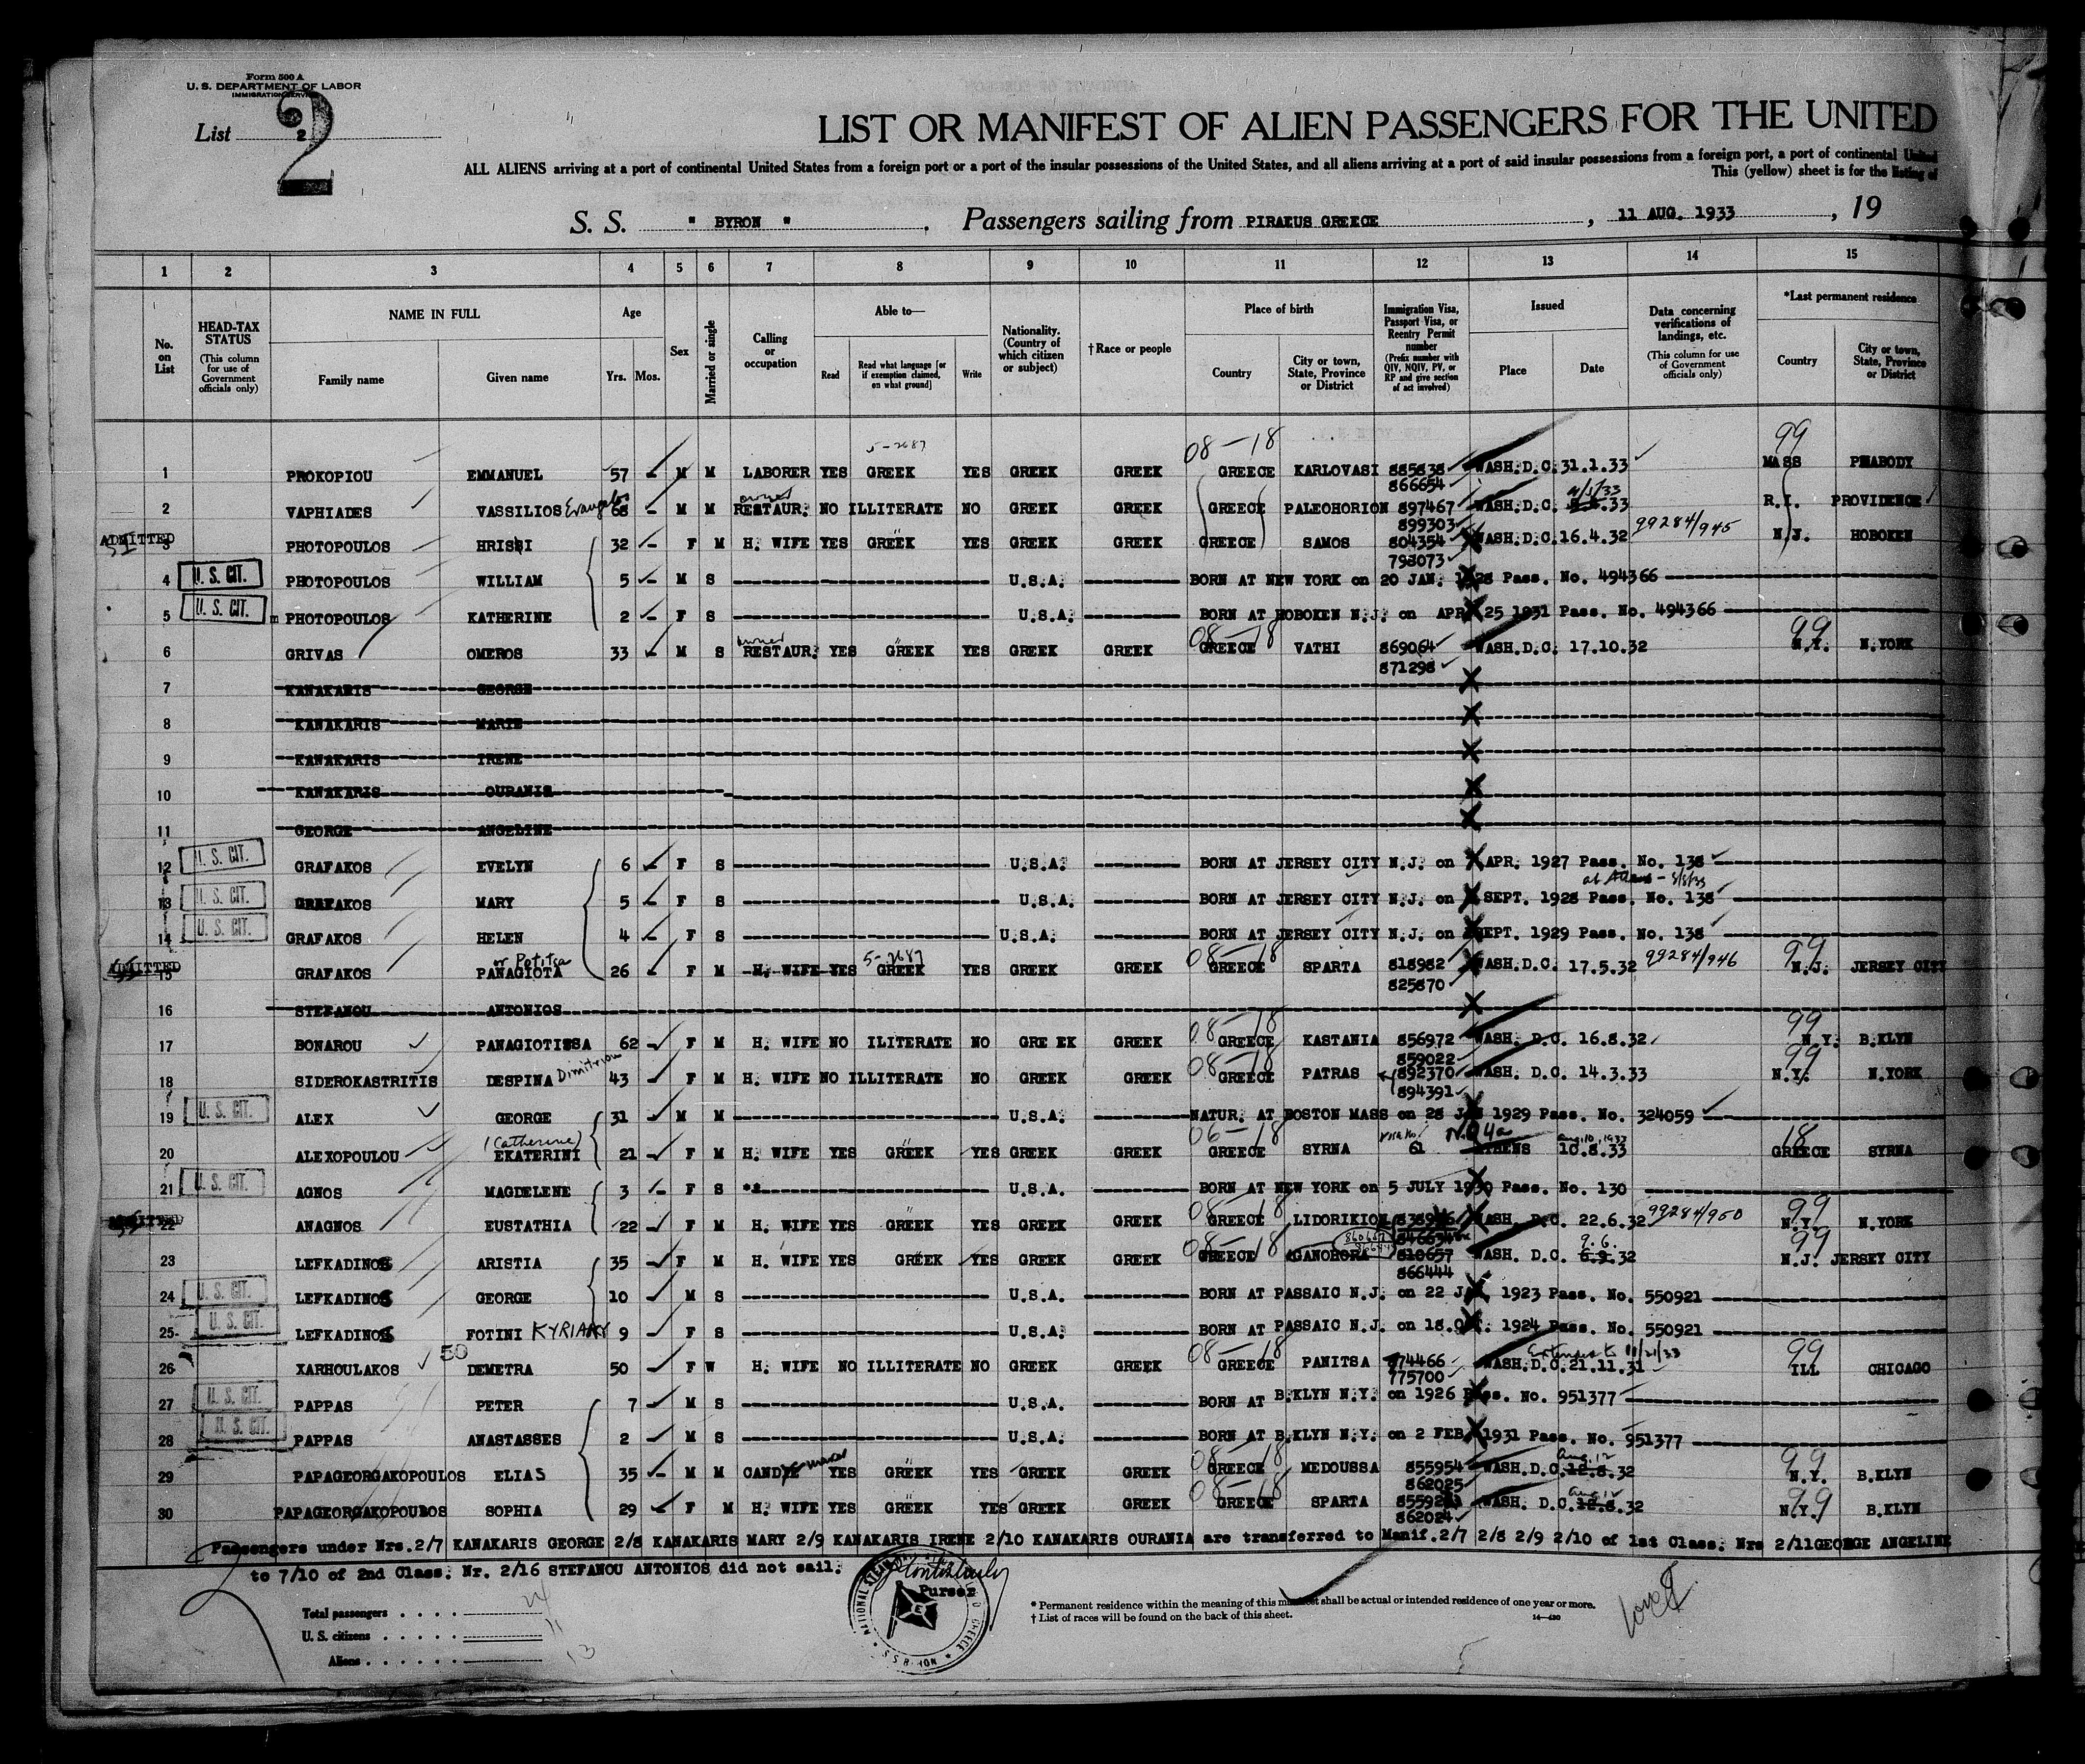 Form 500 A
U. S. DEPARTMENT OF LABOR
IMMIGRATION SERVICE
List 2
2
LIST OR MANIFEST OF ALIEN PASSENGERS FOR THE UNITED
ALL ALIENS arriving at a port of continental United States from a foreign port or a port of the insular possessions of the United States, and all aliens arriving at a port of said insular possessions from a foreign port, a port of continental United
This (yellow) sheet is for the listing of
S. S. " BYRON " , Passengers sailing from PIRAEUS GREECE , 11 AUG. 1933 , 19
1 2 3 4 5 6 7 8 9 10 11 12 13 14 15
No. on List
HEAD-TAX STATUS (This column for use of Government officials only)
NAME IN FULL
Family name Given name
Age Yrs. Mos.
Sex
Married or single
Calling or occupation
Able to—
Read Read what language [or if exemption claimed, on what ground] Write
Nationality. (Country of which citizen or subject)
†Race or people
Place of birth
Country City or town, State, Province or District
Immigration Visa, Passport Visa, or Reentry Permit number (Prefix number with QIV, NQIV, PV, or RP and give section of act involved)
Issued
Place Date
Data concerning verifications of landings, etc. (This column for use of Government officials only)
*Last permanent residence
Country City or town, State, Province or District
5-2687 08-18 99
1 PROKOPIOU EMMANUEL 57 M M LABORER YES GREEK YES GREEK GREEK GREECE KARLOVASI 885838 WASH.D.C. 31.1.33 MASS PEABODY
866654
2 VAPHIADES VASSILIOS 68 M M owner RESTAUR. NO ILLITERATE NO GREEK GREEK GREECE PALEOHORION 897467 WASH.D.C. 33 R.I. PROVIDENCE
899303
ADMITTED 3 PHOTOPOULOS HRISSI 32 F M H. WIFE YES GREEK YES GREEK GREEK GREECE SAMOS 804354 WASH.D.C. 16.4.32 99284/945 N.J. HOBOKEN
798073
4 U. S. CIT. PHOTOPOULOS WILLIAM 5 M S U.S.A. BORN AT NEW YORK on 20 JAN. Pass. No. 494366
5 U. S. CIT. PHOTOPOULOS KATHERINE 2 F S U.S.A. BORN AT HOBOKEN N.J. on APR 25 1931 Pass. No. 494366
08-18 99
6 GRIVAS OMEROS 33 M S owner RESTAUR. YES GREEK YES GREEK GREEK GREECE VATHI 869064 WASH.D.C. 17.10.32 N.Y. N.YORK
871298
7 KANAKARIS GEORGE
8 KANAKARIS MARYE
9 KANAKARIS IRENE
10 KANAKARIS OURANIS
11 GEORGE ANGELINE
12 U. S. CIT. GRAFAKOS EVELYN 6 F S U.S.A. BORN AT JERSEY CITY N.J. on APR. 1927 Pass. No. 138
13 U. S. CIT. GRAFAKOS MARY 5 F S U.S.A. BORN AT JERSEY CITY N.J. on SEPT. 1928 Pass. No. 138
14 U. S. CIT. GRAFAKOS HELEN 4 F S U.S.A. BORN AT JERSEY CITY N.J. on SEPT. 1929 Pass. No. 138
or Potitsa 5-2687 08-18 99
ADMITTED 15 GRAFAKOS PANAGIOTA 26 F M H. WIFE YES GREEK YES GREEK GREEK GREECE SPARTA 818982 WASH.D.C. 17.5.32 99284/946 N.J. JERSEY CITY
825870
16 STEFANOU ANTONIOS
08-18 99
17 BONAROU PANAGIOTISSA 62 F M H. WIFE NO ILITERATE NO GRE EK GREEK GREECE KASTANIA 856972 WASH. D.C. 16.8.32 N.Y. B.KLYN
859022
08-18 99
18 SIDEROKASTRITIS DESPINA Dimitriou 43 F M H. WIFE NO ILLITERATE NO GREEK GREEK GREECE PATRAS 892370 WASH. D.C. 14.3.33 N.Y. N.YORK
894391
19 U. S. CIT. ALEX GEORGE 31 M M U.S.A. NATUR. AT BOSTON MASS on 28 1929 Pass. No. 324059
(Catherine) 06-18 18
20 ALEXOPOULOU EKATERINI 21 F M H. WIFE YES GREEK YES GREEK GREEK GREECE SYRNA 61 ATHENS 10.8.33 GREECE SYRNA
21 U. S. CIT. AGNOS MAGDELENE 3 F S U.S.A. BORN AT NEW YORK on 5 JULY 1930 Pass. No. 130
08-18 99
22 ANAGNOS EUSTATHIA 22 F M H. WIFE YES GREEK YES GREEK GREEK GREECE LIDORIKION WASH. D.C. 22.6.32 99284/950 N.Y. N.YORK
08-18 9.6. 99
23 LEFKADINOS ARISTIA 35 F M H. WIFE YES GREEK YES GREEK GREEK GREECE AGANOHORA 810657 WASH. D.C. 32 N.J. JERSEY CITY
866444
24 U. S. CIT. LEFKADINOS GEORGE 10 M S U.S.A. BORN AT PASSAIC N.J. on 22 1923 Pass. No. 550921
25 U. S. CIT. LEFKADINOS FOTINI 9 F S U.S.A. BORN AT PASSAIC N.J. on 18. 1924 Pass. No. 550921
50 08-18 99
26 XARHOULAKOS DEMETRA 50 F W H. WIFE NO ILLITERATE NO GREEK GREEK GREECE PANITSA 774466 WASH.D.C. 21.11.31 ILL CHICAGO
775700
27 U. S. CIT. PAPPAS PETER 7 M S U.S.A. BORN AT B.KLYN N.Y. on 1926 Pass. No. 951377
28 U. S. CIT. PAPPAS ANASTASSES 2 M S U.S.A. BORN AT B.KLYN N.Y. on 2 FEB 1931 Pass. No. 951377
08-18 99
29 PAPAGEORGAKOPOULOS ELIAS 35 M M YES GREEK YES GREEK GREEK GREECE MEDOUSSA 855954 WASH.D.C. 12.8.32 N.Y. B.KLYN
862025
08-18 99
30 PAPAGEORGAKOPOULOS SOPHIA 29 F M H. WIFE YES GREEK YES GREEK GREEK GREECE SPARTA WASH. D.C. 12.8.32 N.Y. B.KLYN
862024
Passengers under Nrs.2/7 KANAKARIS GEORGE 2/8 KANAKARIS MARY 2/9 KANAKARIS IRENE 2/10 KANAKARIS OURANIA are transferred to Manif.2/7 2/8 2/9 2/10 of 1st Class. Nrs 2/11GEORGE ANGELINE
to 7/10 of 2nd Class. Nr. 2/16 STEFANOU ANTONIOS did not sail.
Purser
Total passengers . . . . 24
U. S. citizens . . . . . 11
Aliens . . . . . . 13
* Permanent residence within the meaning of this manifest shall be actual or intended residence of one year or more.
† List of races will be found on the back of this sheet.
14—430